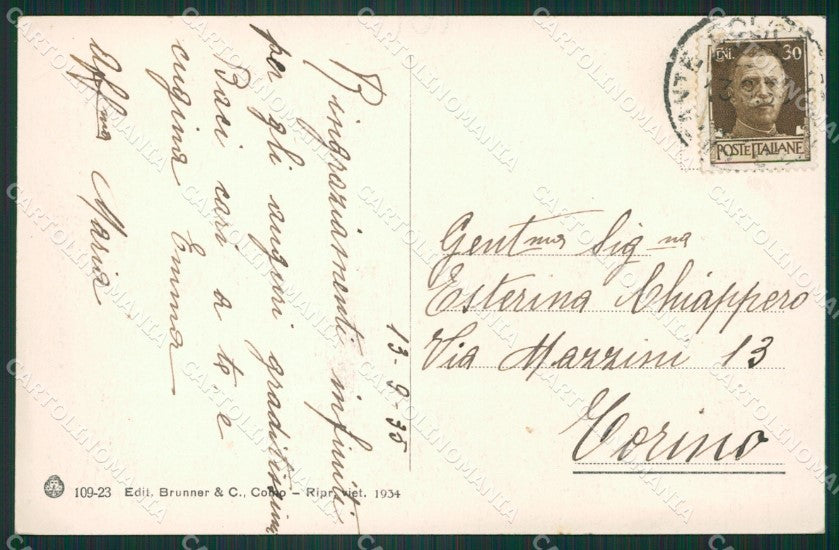 13-9-35
Ringraziamenti infiniti
per gli auguri graditissimi
Baci cari a te e
cugina Emma
Aff.ma Maria
CENT. 30
POSTE ITALIANE
Gent.ma Sig.na
Esterina Chiappero
Via Mazzini 13
Torino
109-23 Edit. Brunner & C., Como – Ripr. viet. 1934
CARTOLINOMANIA